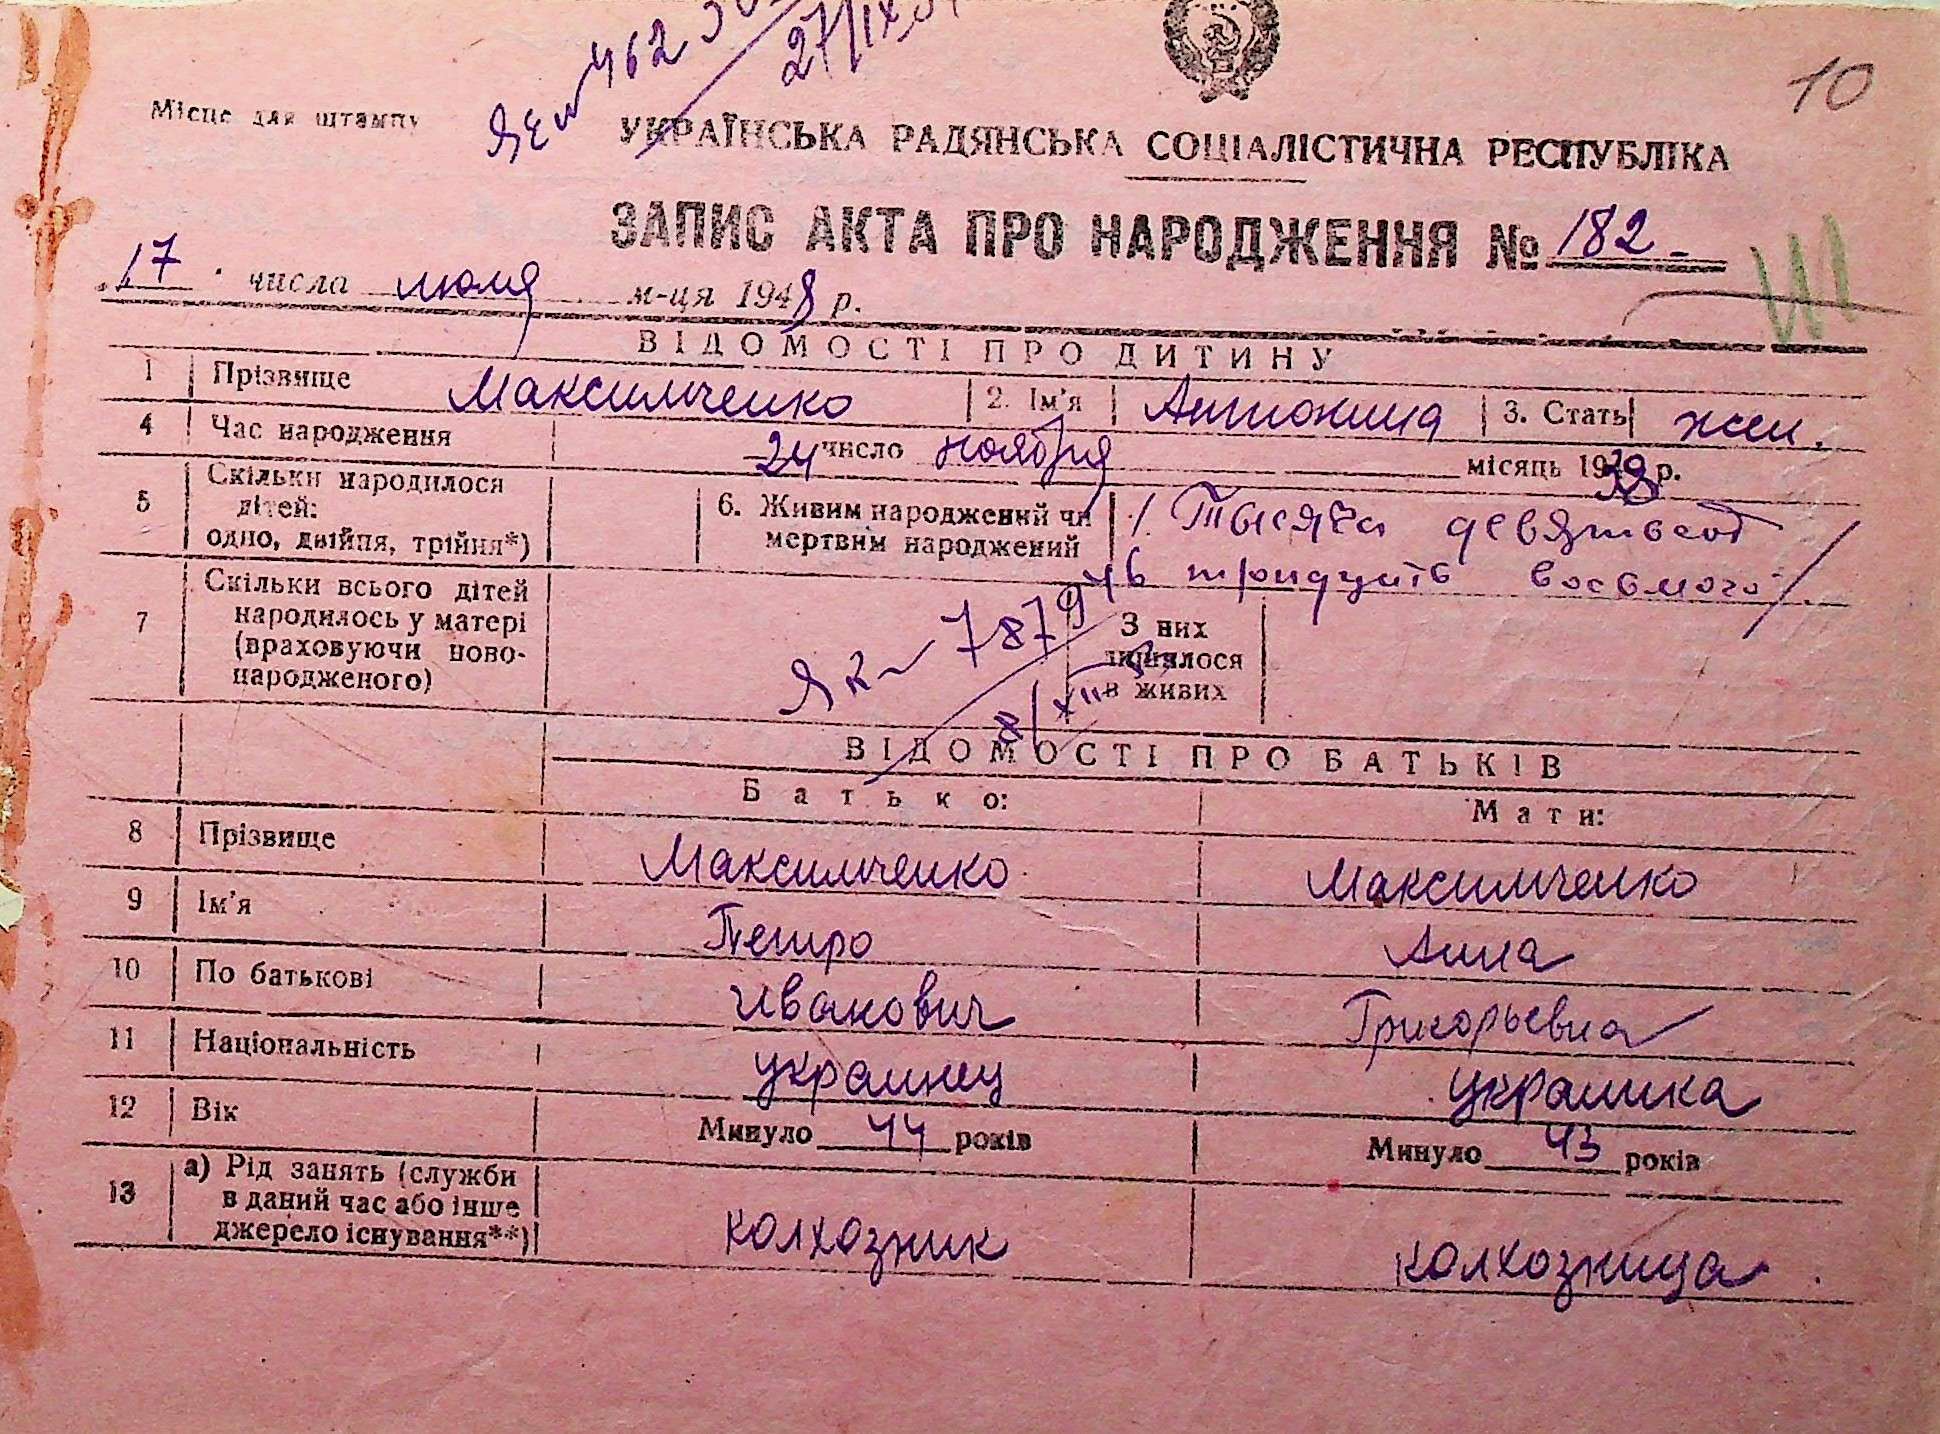 10
Місце для штампу
УКРАЇНСЬКА РАДЯНСЬКА СОЦІАЛІСТИЧНА РЕСПУБЛІКА
ЗАПИС АКТА ПРО НАРОДЖЕННЯ № 182
17 числа июля м-ця 1948 р.
ВІДОМОСТІ ПРО ДИТИНУ
1 Прізвище Максимченко 2. Ім'я Антонина 3. Стать жен.
4 Час народження 24 число ноября місяць 1938 р.
5 Скільки народилося дітей: одно, двійня, трійня*) 6. Живим народжений чи мертвим народжений / Тысяча девятьсот
тридцать восьмого /
7 Скільки всього дітей народилось у матері (враховуючи новонародженого) З них лишилося в живих
7879
ВІДОМОСТІ ПРО БАТЬКІВ
Батько: Мати:
8 Прізвище Максимченко Максимченко
9 Ім'я Петро Анна
10 По батькові Иванович Григорьевна
11 Національність украинец украинка
12 Вік Минуло 44 років Минуло 43 років
13 а) Рід занять (служби в даний час або інше джерело існування**) колхозник колхозница